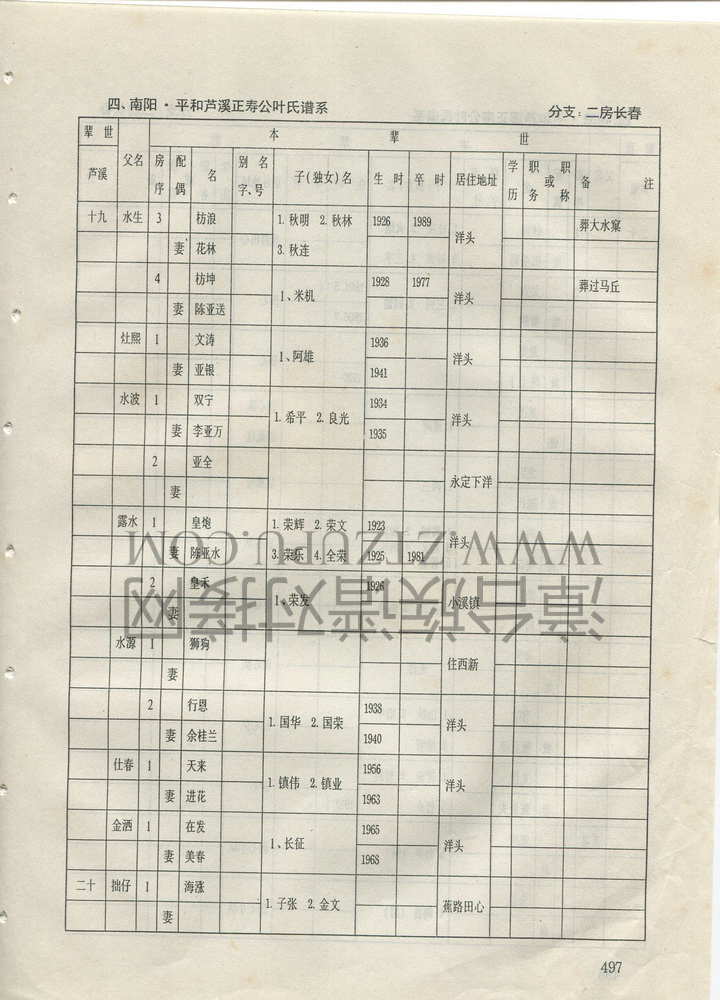 四、南阳·平和芦溪正寿公叶氏谱系 分支：二房长春
辈世 本辈世
芦溪 父名 房序 配偶 名 别名字、号 子(独女)名 生时 卒时 居住地址 学历 职务或职称 备注
十九 水生 3 枋浪 1.秋明 2.秋林 1926 1989 洋头 葬大水窠
妻 花林 3.秋连
4 枋坤 1、米机 1928 1977 洋头 葬过马丘
妻 陈亚送
灶熙 1 文涛 1、阿雄 1936 洋头
妻 亚银 1941
水波 1 双宁 1.希平 2.良光 1934 洋头
妻 李亚万 1935
2 亚全 永定下洋
妻
露水 1 皇炮 1.荣辉 2.荣文 1923 洋头
妻 陈亚水 3.荣乐 4.全荣 1925 1981
2 皇禾 1、荣发 1926 小溪镇
妻
水源 1 狮狗 住西新
妻
2 行恩 1.国华 2.国荣 1938 洋头
妻 余桂兰 1940
仕春 1 天来 1.镇伟 2.镇业 1956 洋头
妻 进花 1963
金洒 1 在发 1、长征 1965 洋头
妻 美春 1968
二十 拙仔 1 海涨 1.子张 2.金文 蕉路田心
妻
497
WWW.ZTZUPU.COM
漳台族谱对接网